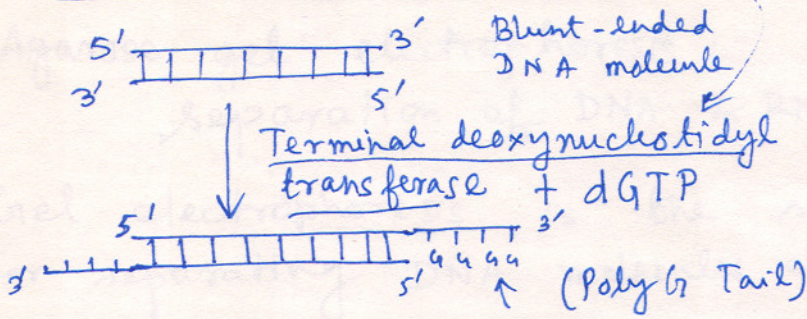 5' 3' Blunt-ended
3' 5' DNA molecule
Terminal deoxynucleotidyl
transferase + dGTP
5' 3'
3' 5' G G G G (Poly G Tail)